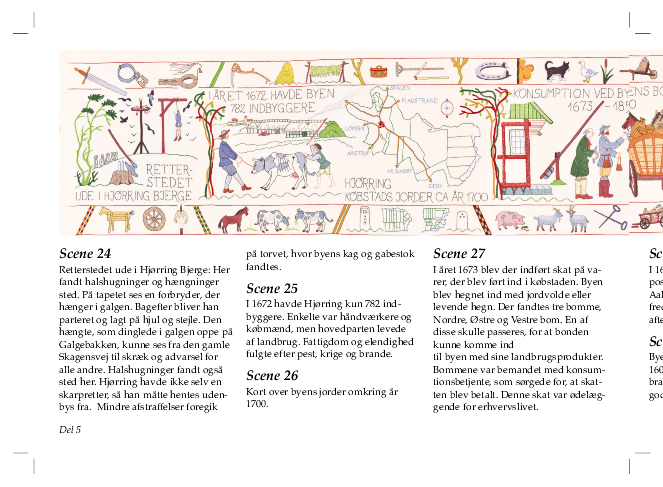 I ÅRET 1672 HAVDE BYEN
782 INDBYGGERE
SKAGEN
FLADSTRAND
SÆBY
HJØRRING
KØBSTADS JORDER CA ÅR 1700
RETTER-
STEDET
UDE I HJØRRING BJERGE
KONSUMPTION VED BYENS BO
1673 – 1850
Scene 24
Retterstedet ude i Hjørring Bjerge: Her
fandt halshugninger og hængninger
sted. På tapetet ses en forbryder, der
hænger i galgen. Bagefter bliver han
parteret og lagt på hjul og stejle. Den
hængte, som dinglede i galgen oppe på
Galgebakken, kunne ses fra den gamle
Skagensvej til skræk og advarsel for
alle andre. Halshugninger fandt også
sted her. Hjørring havde ikke selv en
skarpretter, så han måtte hentes uden-
bys fra.  Mindre afstraffelser foregik
på torvet, hvor byens kag og gabestok
fandtes.
Scene 25
I 1672 havde Hjørring kun 782 ind-
byggere. Enkelte var håndværkere og
købmænd, men hovedparten levede
af landbrug. Fattigdom og elendighed
fulgte efter pest, krige og brande.
Scene 26
Kort over byens jorder omkring år
1700.
Scene 27
I året 1673 blev der indført skat på va-
rer, der blev ført ind i købstaden. Byen
blev hegnet ind med jordvolde eller
levende hegn. Der fandtes tre bomme,
Nordre, Østre og Vestre bom. En af
disse skulle passeres, for at bonden
kunne komme ind
til byen med sine landbrugsprodukter.
Bommene var bemandet med konsum-
tionsbetjente, som sørgede for, at skat-
ten blev betalt. Denne skat var ødelæg-
gende for erhvervslivet.
Sc
I 16
pos
Aal
fred
afte
Sc
Bye
160
bra
god
Del 5